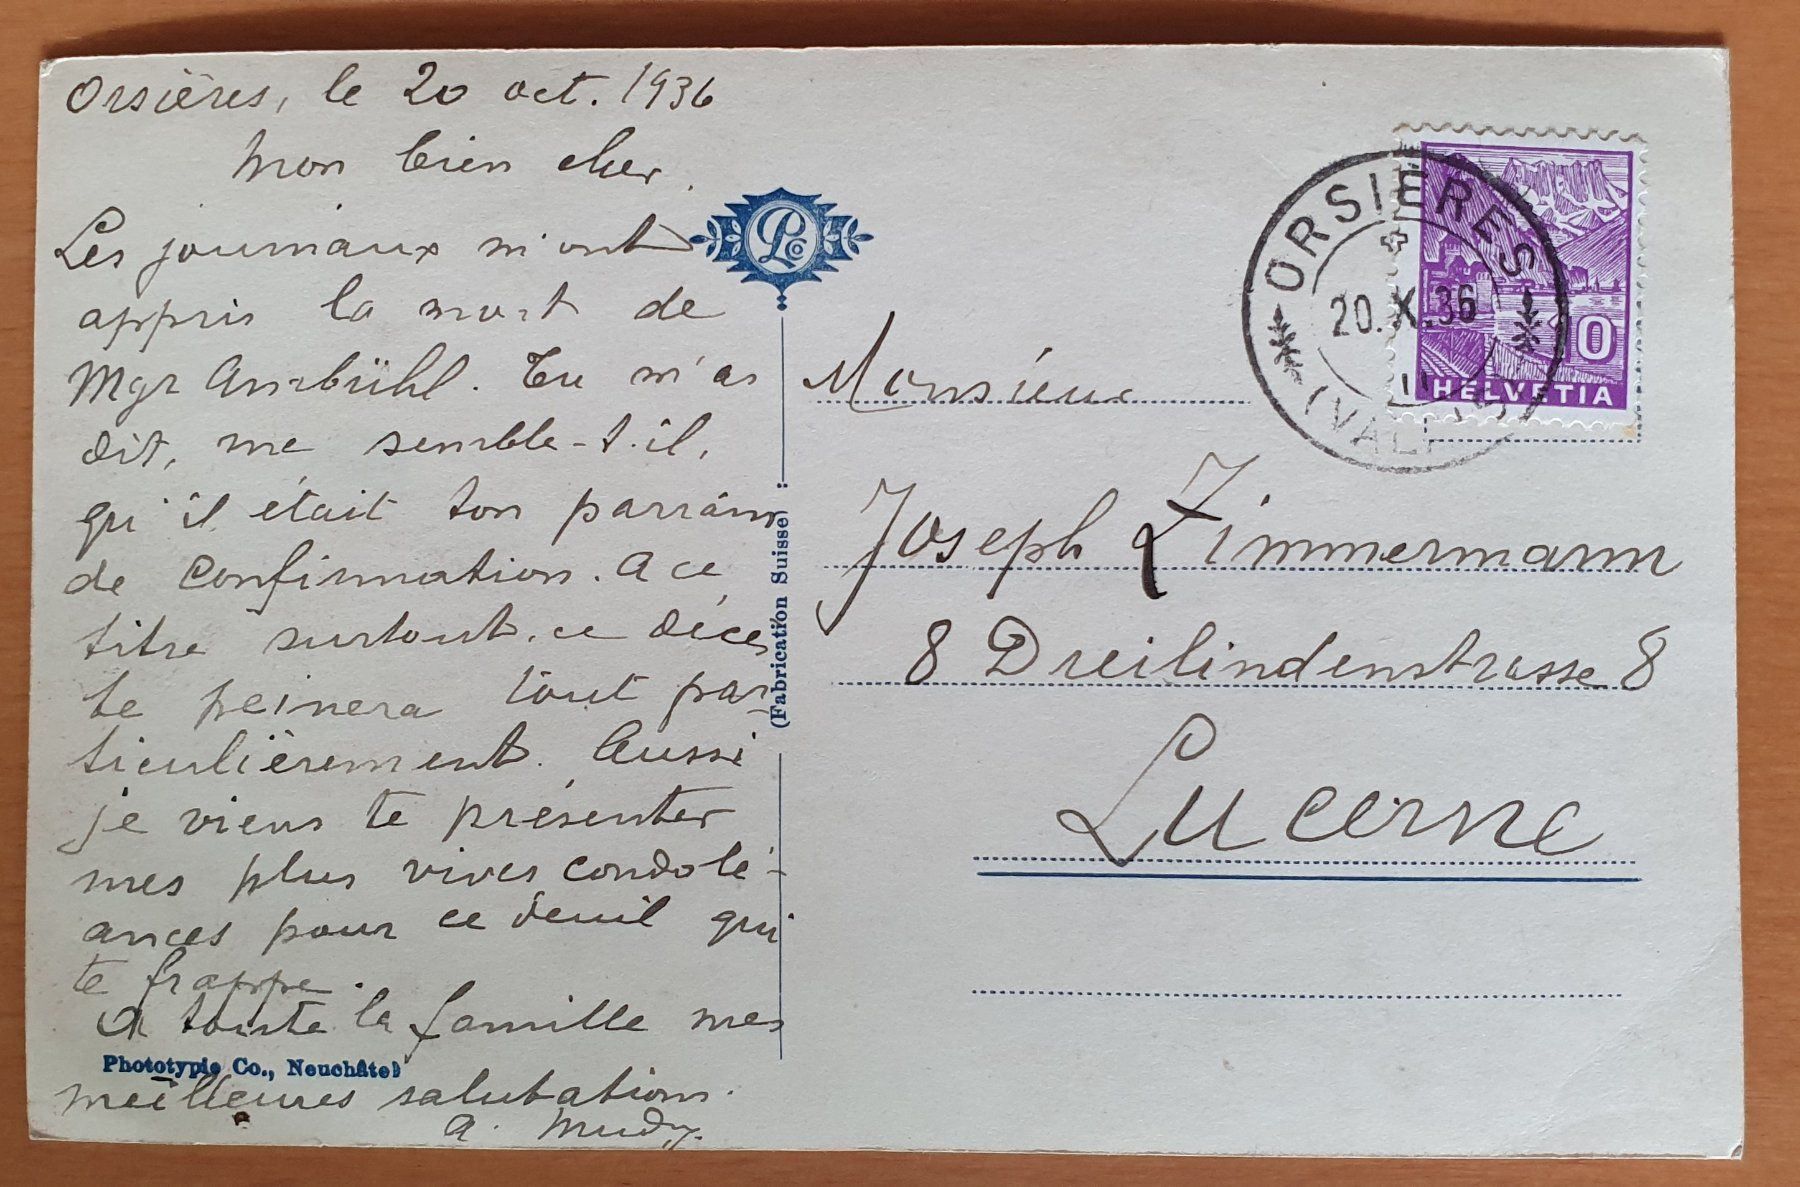 Orsières, le 20 oct. 1936
Mon bien cher,
Les journaux m'ont
appris la mort de
Mgr Ambühl. Tu m'as
dit, me semble-t-il,
qu'il était ton parrain
de Confirmation. A ce
titre surtout, ce décès
te peinera tout par-
ticulièrement. Aussi
je viens te présenter
mes plus vives condolé-
ances pour ce deuil qui
te frappe.
A toute la famille mes
meilleures salutations.
A.
Phototypie Co., Neuchâtel
(Fabrication Suisse)
L Co
ORSIÈRES
20.X.36
(VALAIS)
10
HELVETIA
Monsieur
Joseph Zimmermann
8 Dreilindenstrasse 8
Lucerne